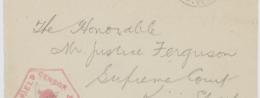 The Honorable
Mr Justice Ferguson
Supreme Court
King Street
CENSOR